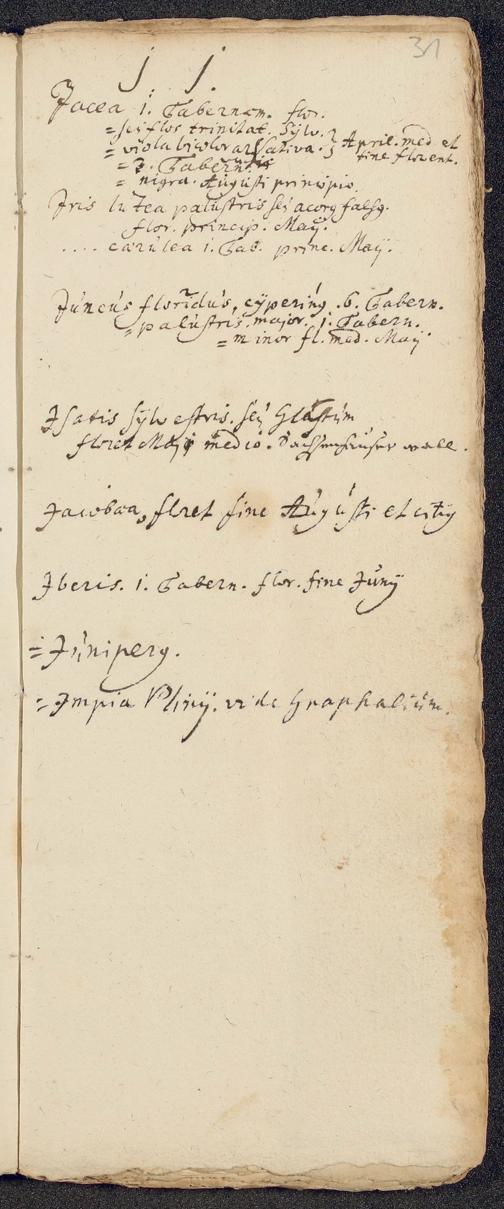 31
J j.
Jacea 1. Tabernæm. flor.
= seu flos trinitat. Sylv. } April. med et
= viola tricolor sativa. } fine florent.
= 3. Tabern.
= nigra. Augusti principio.
Iris lutea palustris seu acorg falsg.
flor. princip. Maij.
.... cærulea 1. Tab. princ. Maij.
Juncus floridus, cypering .6. Tabern.
= palustris. major. 1. Tabern.
= minor fl. med. Maij.
Isatis sylvestris. seu Glastum
floret Maji medio. Sachsenhäuser wall.
Jacobæa, floret fine Augusti et citiy
Iberis. 1. Tabern. flor. fine Junij
= Juniperg.
= Impia Plinij. vide Gnaphalium.